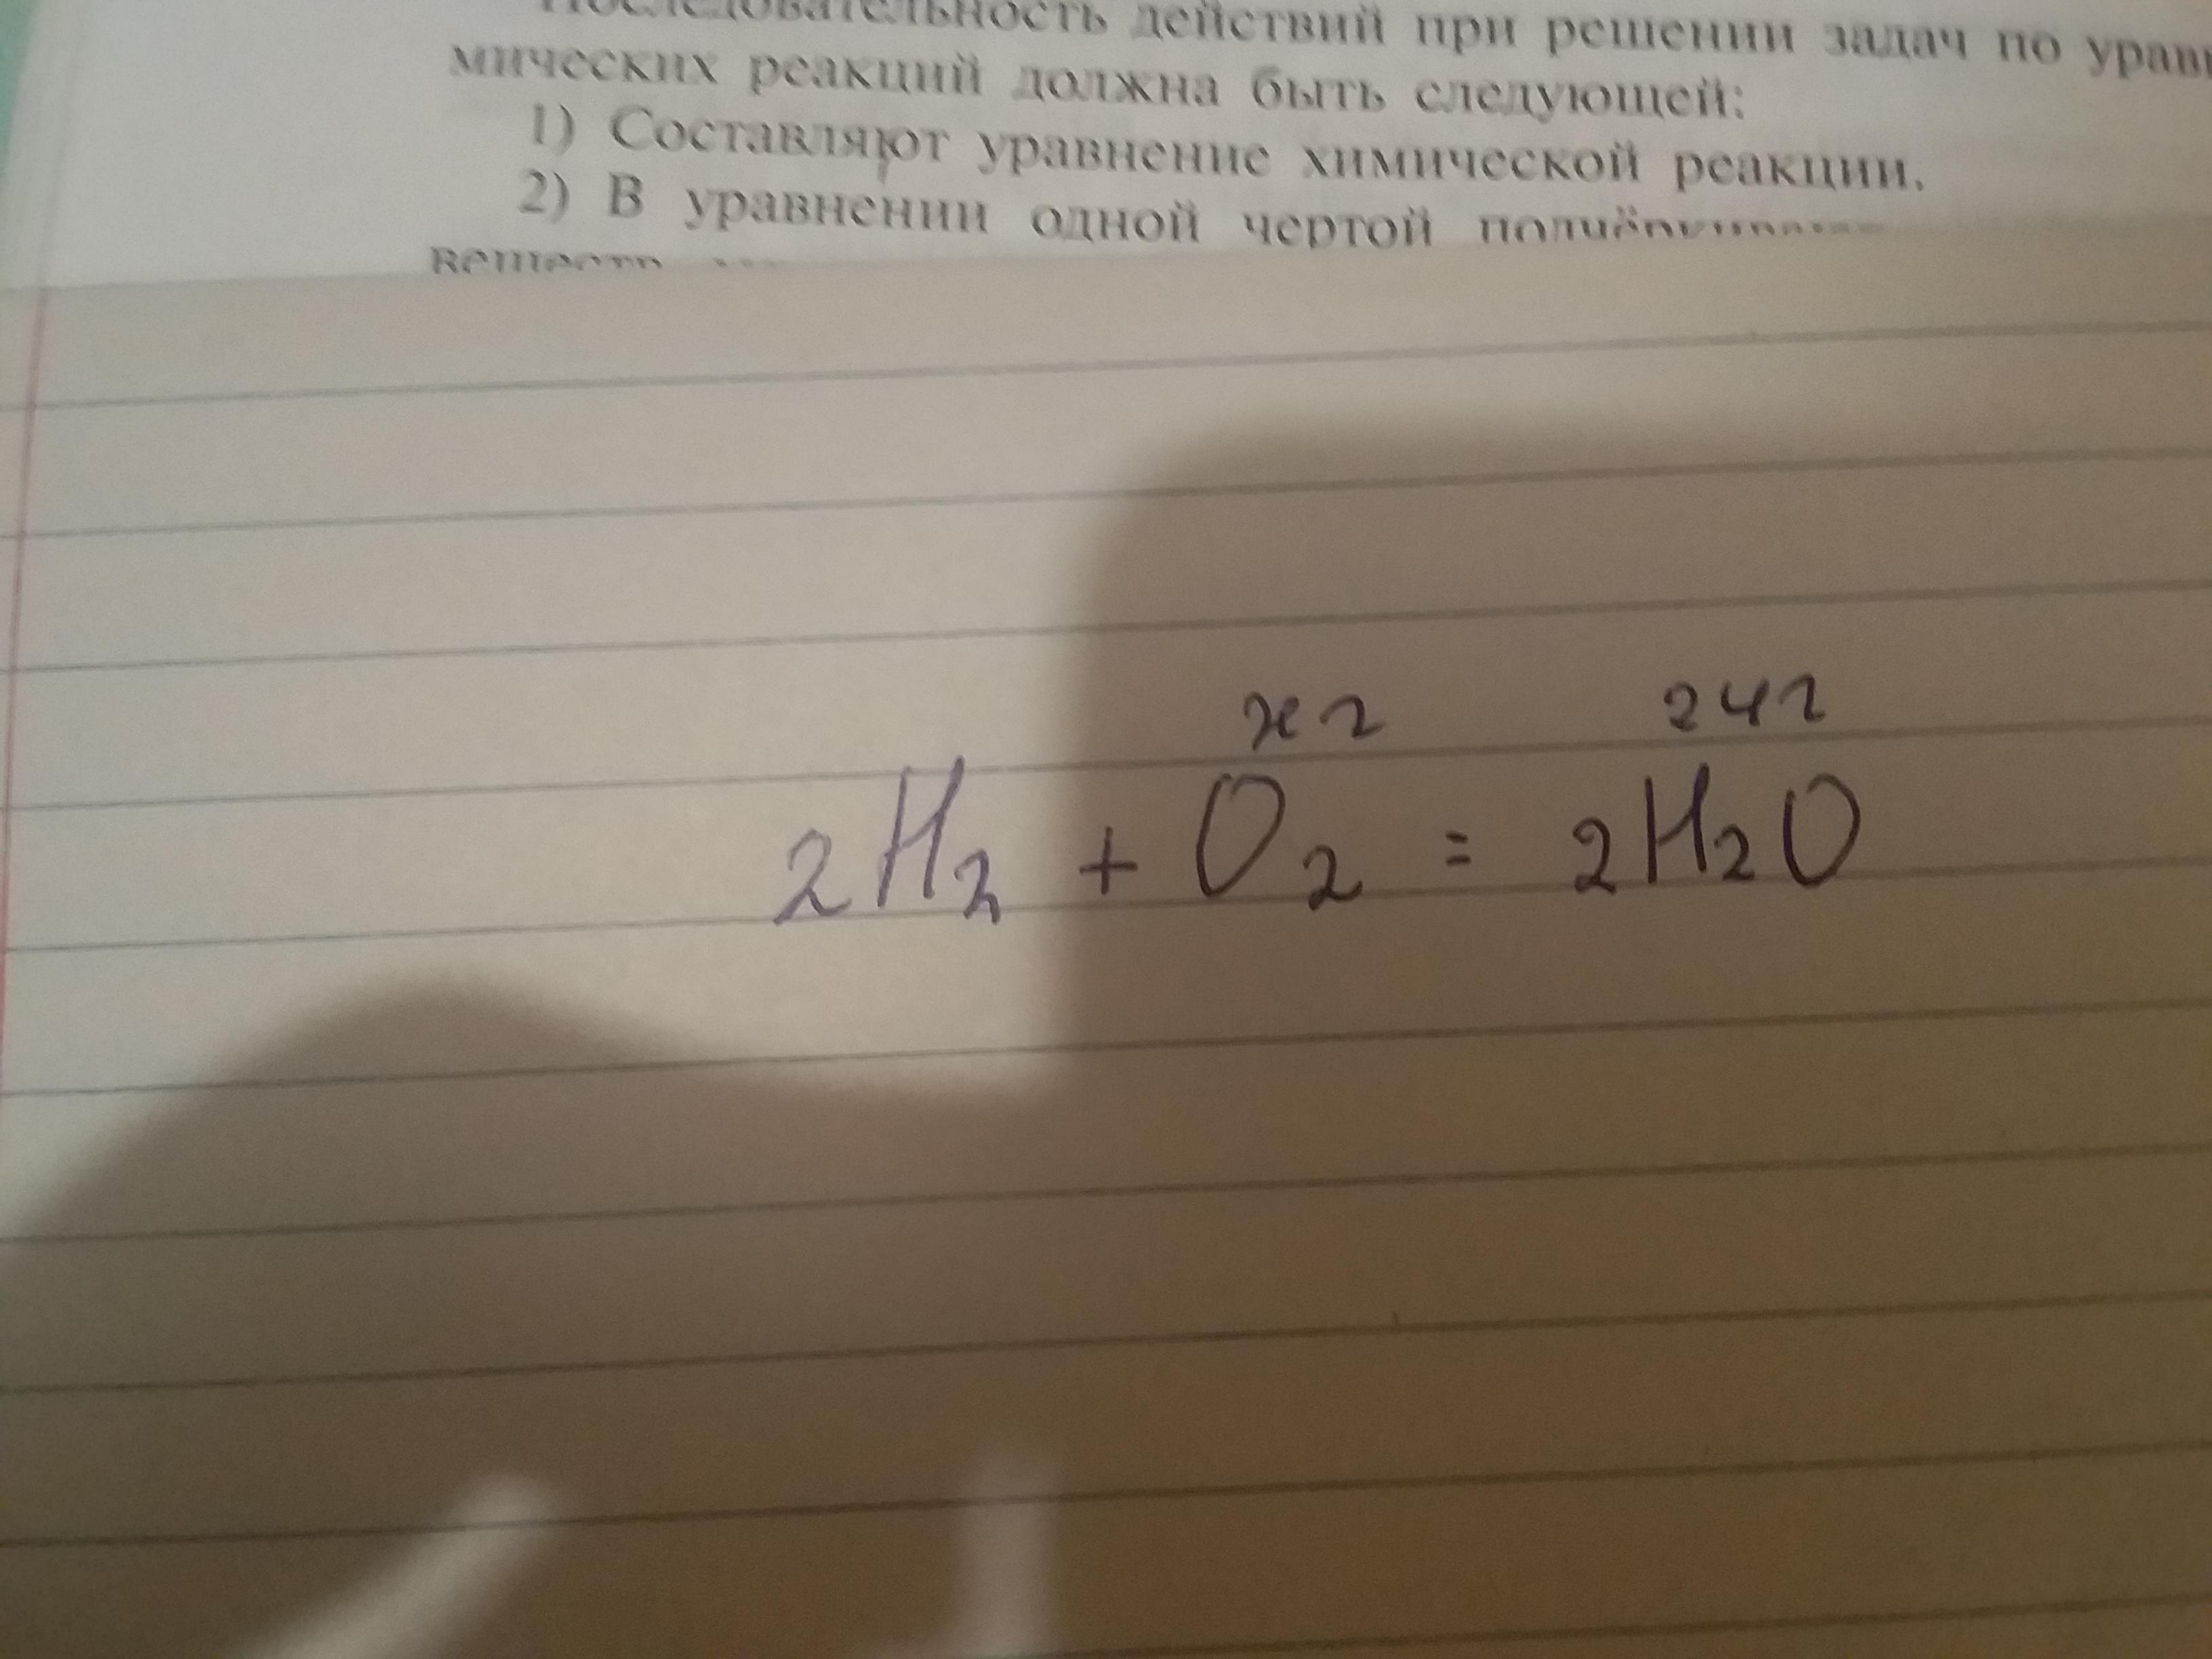 Последовательность действий при решении задач по
мических реакций должна быть следующей:
1) Составляют уравнение химической реакции.
2) В уравнении одной чертой
х г 24г
2H₂ + O₂ = 2H₂O